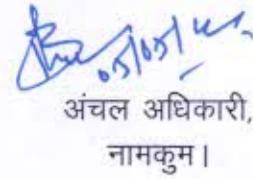 अंचल अधिकारी,
नामकुम।